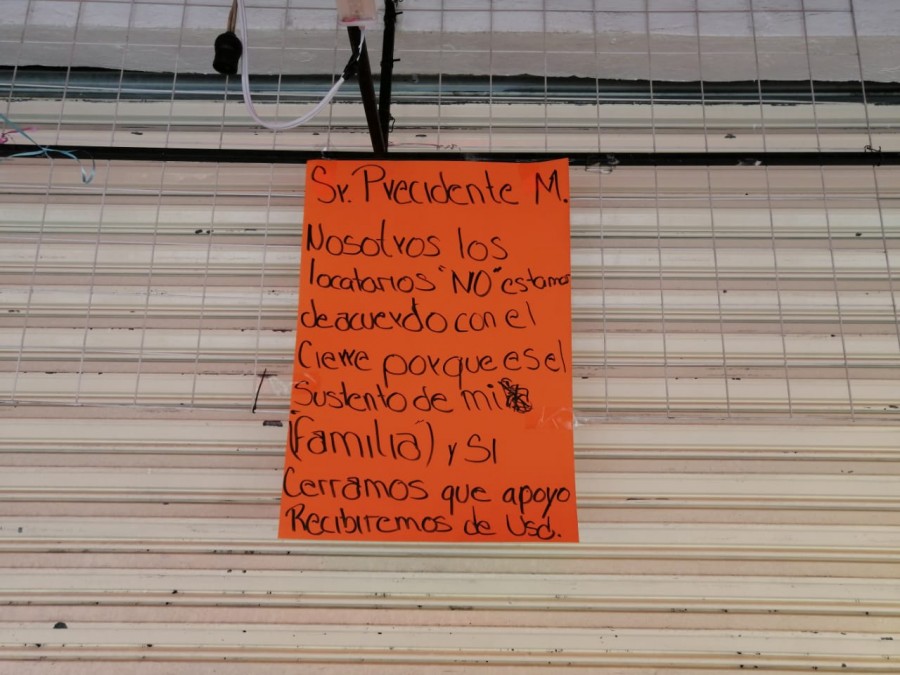 Sr. Precidente M.
Nosotros los
locatarios "NO" estamos
de acuerdo con el
Cierre porque es el
Sustento de mi
(Familia) y SI
Cerramos que apoyo
Recibiremos de Usd.